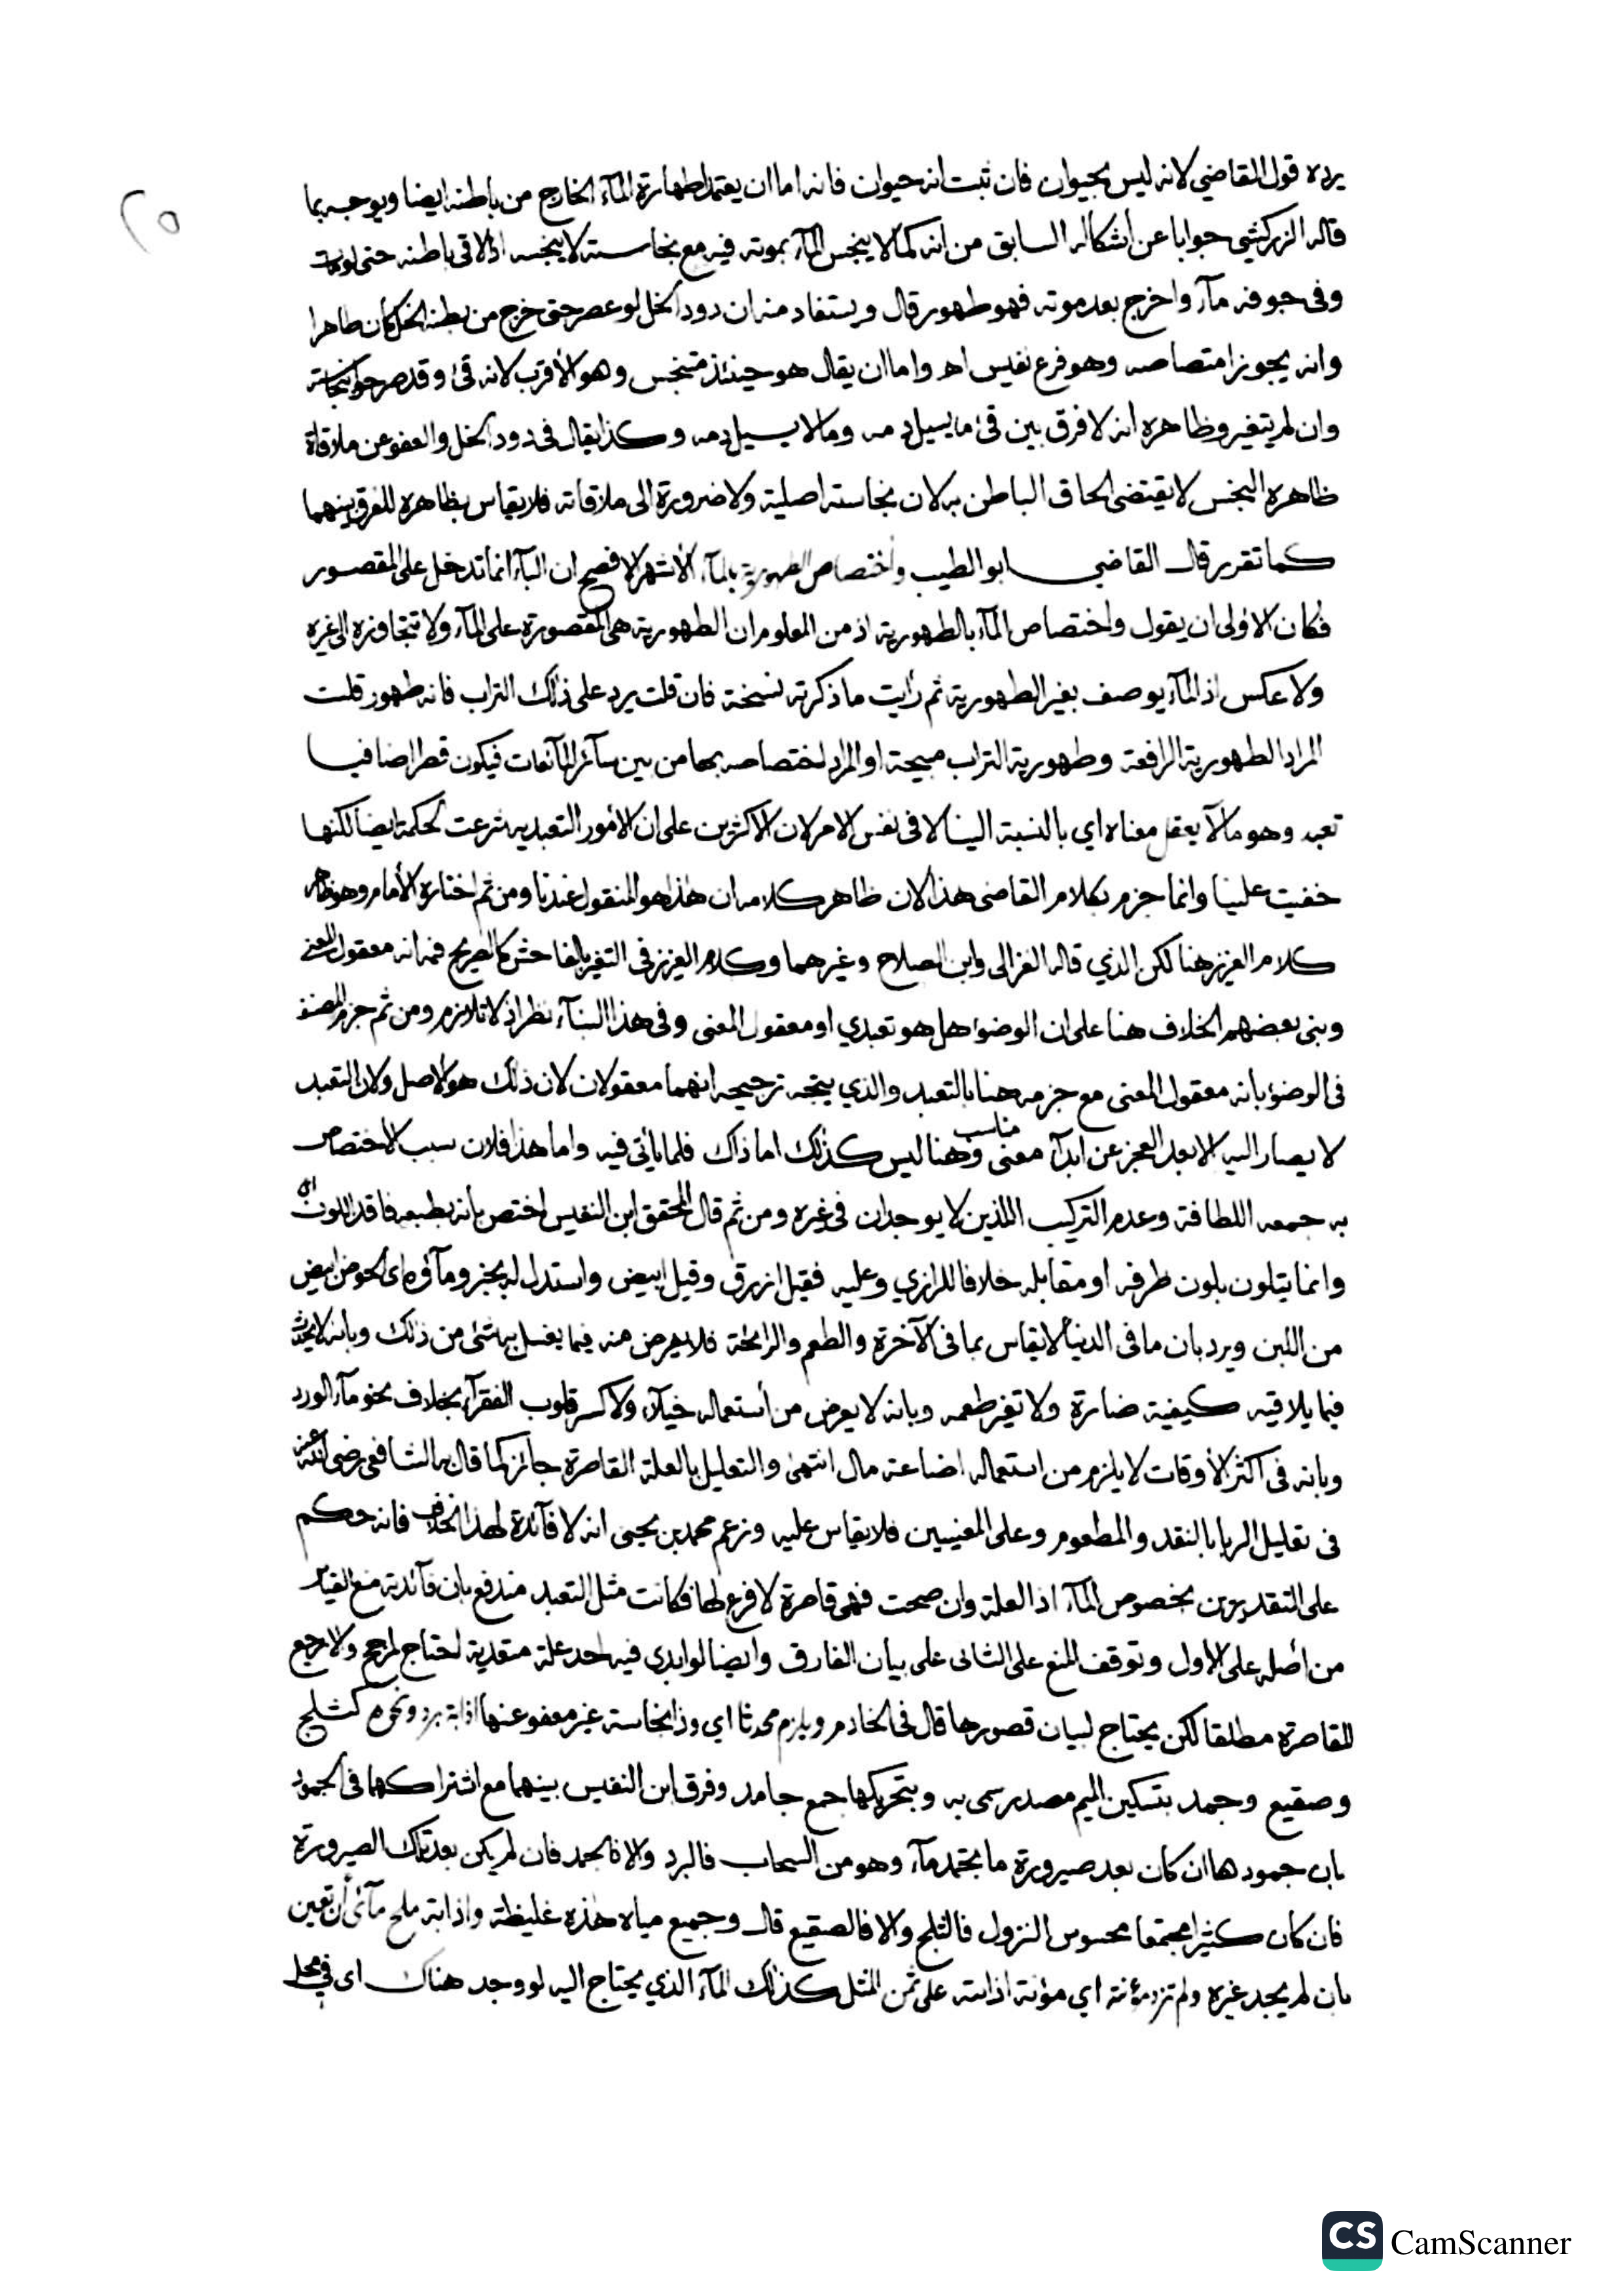 ٢٥
يرده قول القاضي لانه ليس بحيوان فان ثبت انه حيوان فانه اما ان يعتمد لطهارة المآء الخارج من باطنه ايضا ويوجه بما
قاله الزركشي جوابا عن اشكاله السابق من انه كما لا ينجس المآء بموته فيه مع نجاسته لا ينجسه اذا لاقى باطنه حتى لو مات
وفى جوفه مآء واخرج بعد موته فهو طهور قال ويستفاد منه ان دود الخل لو عصر حتى خرج من بطنه الخل كان طاهرا
وانه يجوز امتصاصه وهو فرع نفيس اه واما ان يقال هو حينئذ متنجس وهو الأقرب لانه قئ وقد صرحوا بنجاسته
وان لم يتغير وظاهره انه لا فرق بين قئ ما يسيل دمه وما لا يسيل دمه وكذا يقال فى دود الخل والعفو عن ملاقاة
ظاهره النجس لا يقتضى الحاق الباطن به لان نجاسته اصلية ولا ضرورة الى ملاقاته فلا يقاس بظاهره للفرق بينهما
كما تقرر قال القاضي ابو الطيب واختصاص الطهورية بالمآء الأشهر الافصح ان البآء انما تدخل على المقصور
فكان الاولى ان يقول واختصاص المآء بالطهورية اذ من المعلوم ان الطهورية هى المقصورة على المآء ولا تتجاوزه الى غيره
ولا عكس اذ المآء يوصف بغير الطهورية ثم رأيت ما ذكرته نسخة فان قلت يرد على ذلك التراب فانه طهور قلت
المراد الطهورية الرافعة وطهورية التراب مبيحة او المراد اختصاصه بها من بين سآئر المآئعات فيكون قصرا اضافيا
تعبد وهو ما لا يعقل معناه اي بالنسبة الينا لا فى نفس الامر لان الاكثرين على ان الأمور التعبدية شرعت لحكمة ايضا لكنها
خفيت علينا وانما جزم بكلام القاضى هذا لان ظاهر كلامه ان هذا هو المنقول عندنا ومن ثم اختاره الأمام وهو ظاهر
كلام العزيز هنا لكن الذي قاله الغزالى وابن الصلاح وغيرهما وكلام العزيز فى التغير بالفاحش كالصريح فيه انه معقول المعنى
وبنى بعضهم الخلاف هنا على ان الوضوء هل هو تعبدي او معقول المعنى وفى هذا البنآء نظر اذ لا تلازم ومن ثم جزم المصنف
فى الوضوء بانه معقول المعنى مع جزمه هنا بالتعبد والذي يتجه ترجيحه انهما معقولان لان ذلك هو الاصل ولان التعبد
لا يصار اليه الا بعد العجز عن ابدآء معنى مناسب وهنا ليس كذلك اما ذاك فلما يأتى فيه واما هذا فلان سبب الاختصاص
به جمعه اللطافة وعدم التركيب اللذين لا يوجدان فى غيره ومن ثم قال المحقق ابن النفيس اختص بأنه بطبعه فاقد اللون اه
وانما يتلون بلون ظرفه او مقابله خلافا للرازي وعليه فقيل ازرق وقيل ابيض واستدل له بخبر ومآؤه اى الحوض ابيض
من اللبن ويرد بان ما فى الدنيا لا يقاس بما فى الآخرة والطعم والرائحة فلا يعرض منه فيما يغسل به شئ من ذلك وبانه لا يحدث
فيما يلاقيه كيفية ضارة ولا تغير طعمه وبانه لا يعرض من استعماله خيلاء ولا كسر قلوب الفقرآء بخلاف نحو مآء الورد
وبانه فى اكثر الأوقات لا يلزم من استعماله اضاعة مال انتهى والتعليل بالعلة القاصرة جائز كما قال به الشافعى رضى الله عنه
فى تعليل الربا بالنقد والمطعوم وعلى المعنيين فلا يقاس عليه وزعم محمد بن يحيى انه لا فآئدة لهذا الخلاف فانه حكم
على التقديرين بخصوص المآء اذ العلة وان صحت فهى قاصرة لا فرع لها فكانت مثل التعبد مندفع بان فآئدته منع القياس
من أصله على الاول وتوقف المنع على الثانى على بيان الفارق وايضا لو ابدى فيه احد علة متعدية احتاج لمرجح ولا مرجح
للقاصرة مطلقا لكن يحتاج لبيان قصورها قال فى الخادم ويلزم محدثا اي وذا نجاسة غير معفو عنها اذابة برد ونحوه كثلج
وصقيع وجمد بتسكين الميم مصدر سمى به وبتحريكها جمع جامد وفرق ابن النفيس بينهما مع اشتراكهما فى الجمود
بان جمودها ان كان بعد صيرورة ما يجمد مآء وهو من السحاب فالبرد والا فالجمد فان لم يكن بعد تلك الصيرورة
فان كان كثيرا مجتمعا محسوس النزول فالثلج والا فالصقيع قال وجميع مياه هذه غليظة واذابة ملح مآئى أن تعين
بان لم يجد غيره ولم تزد مؤنته اي مؤنة اذابته على ثمن المثل كذلك المآء الذي يحتاج اليه لو وجد هناك اى فى محل
CS CamScanner